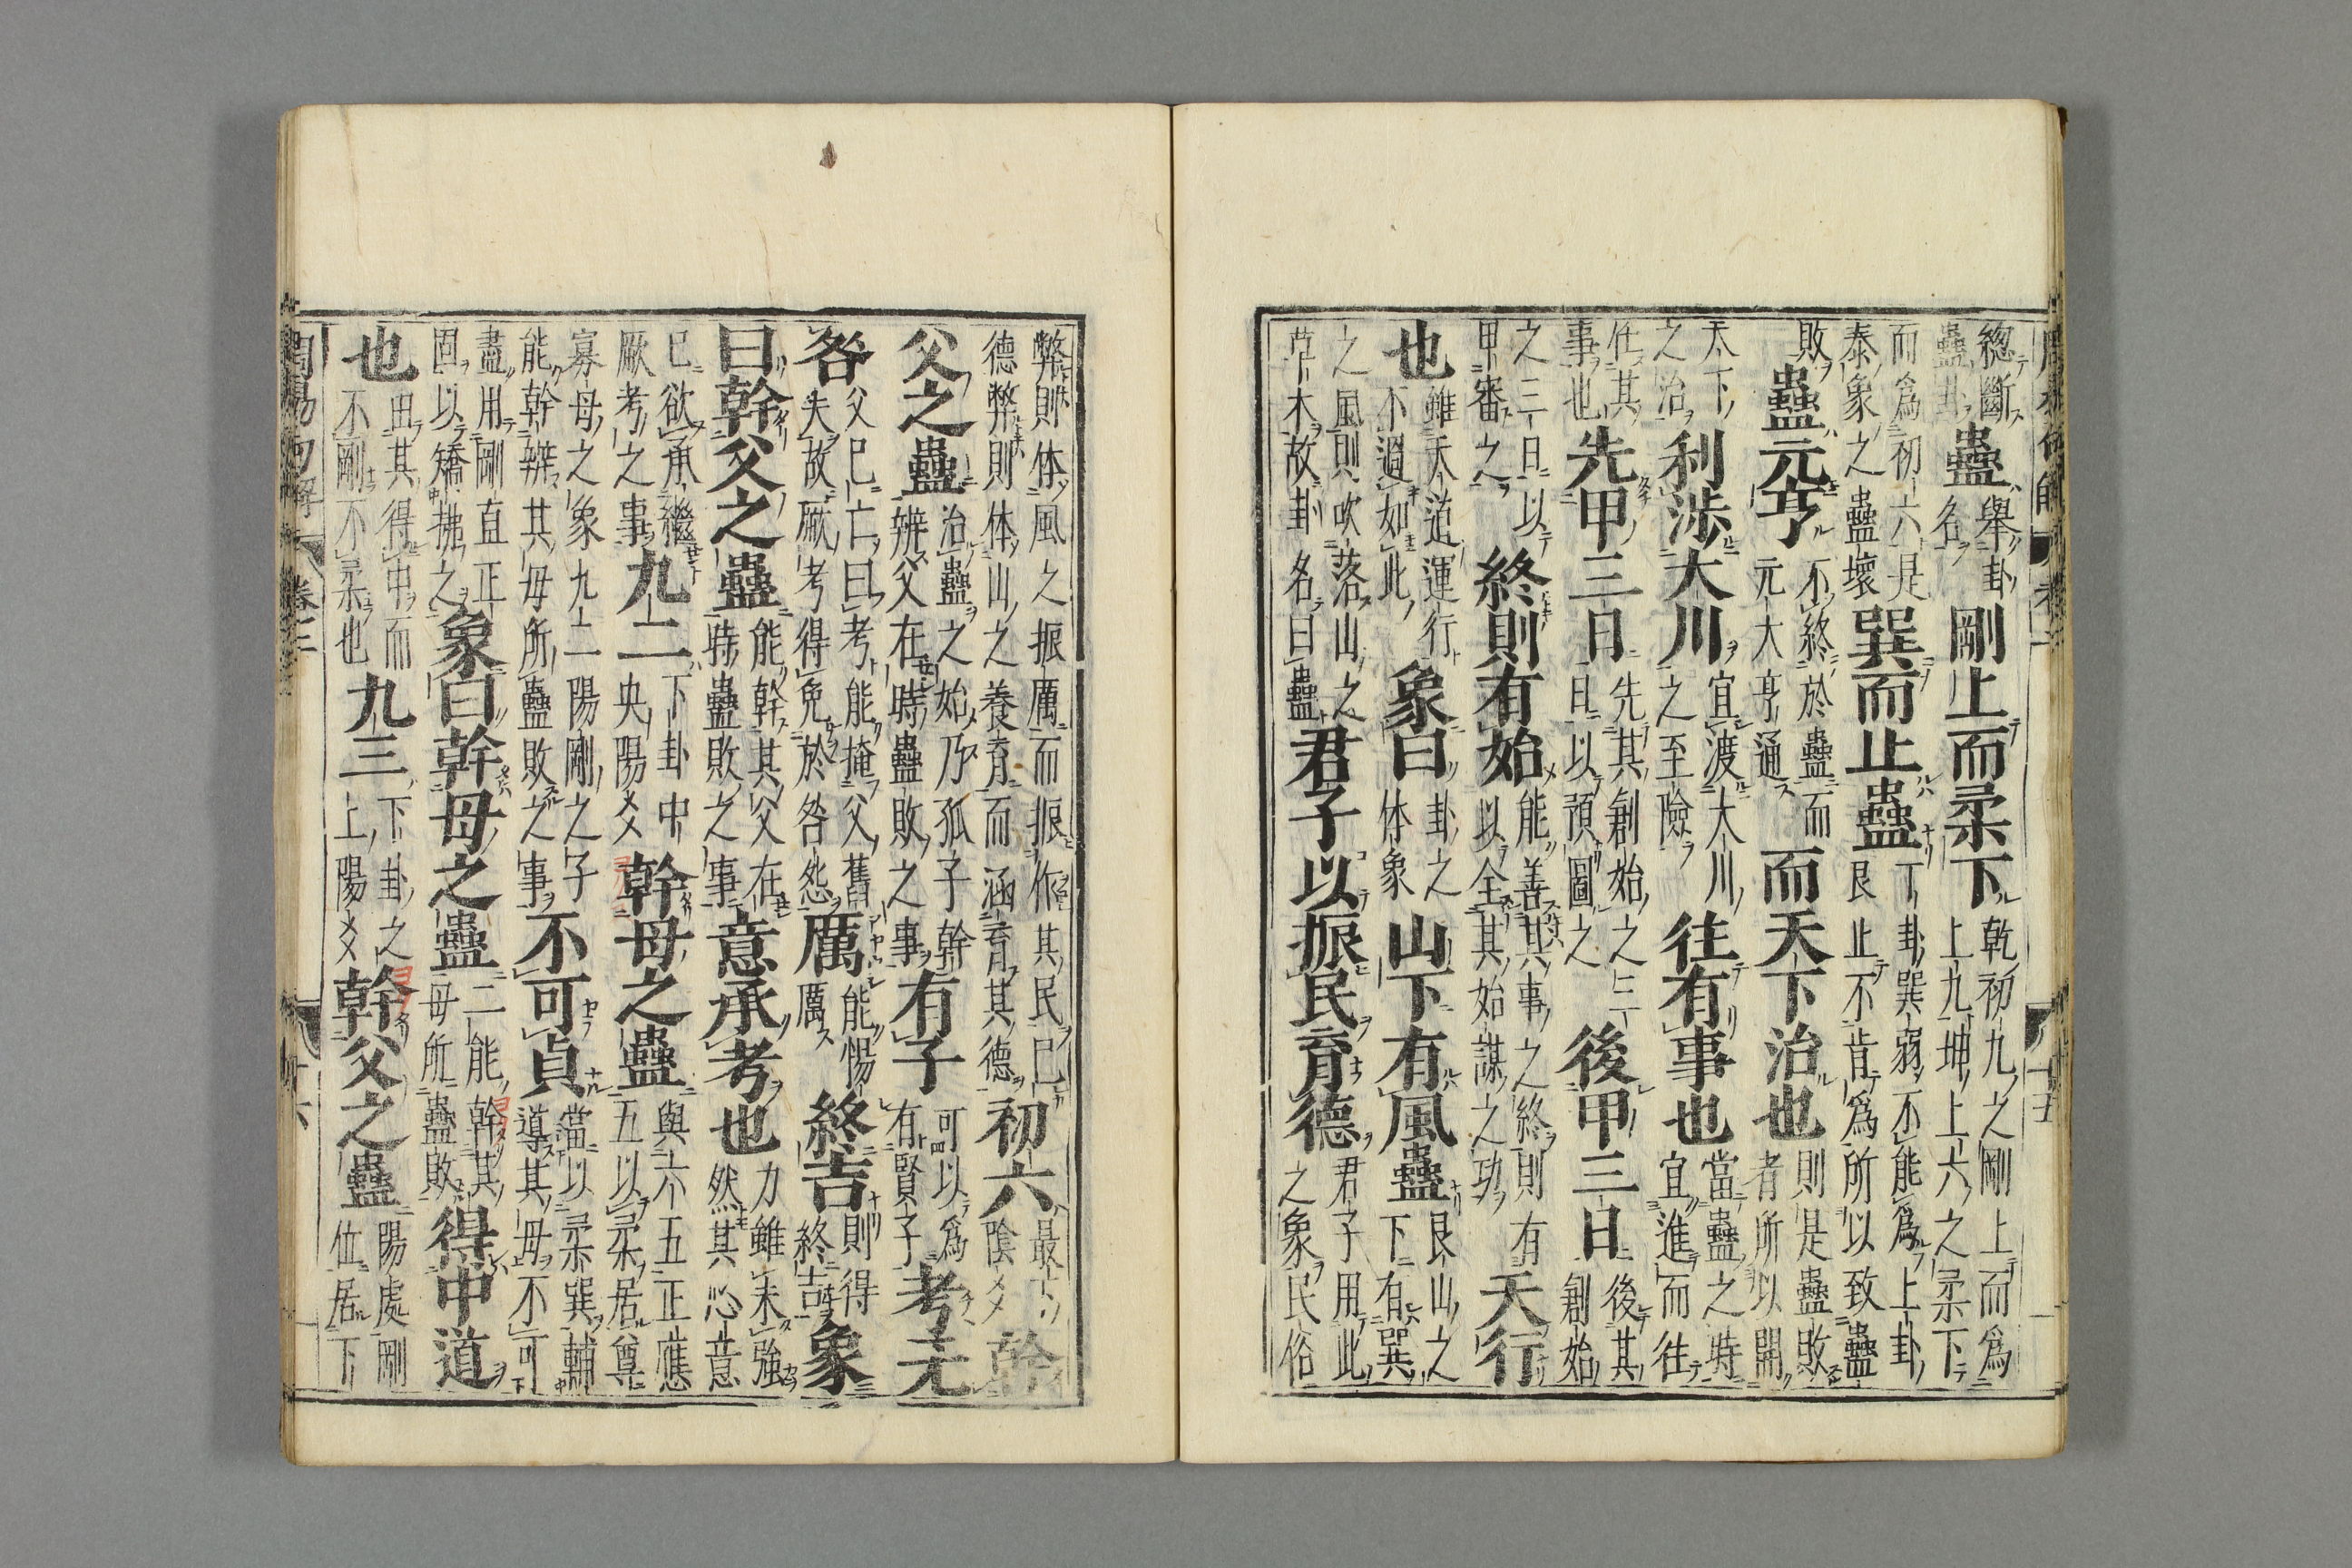 總斷蠱卦蠱舉卦名剛上而柔下乾初九之剛上而爲上九坤上六之柔下
而爲初六是泰象之蠱壞巽而止蠱下卦巽弱不能爲上卦艮止不肯爲所以致蠱
敗蠱元亨不終於蠱而元大亨通而天下治也則是蠱敗者所以開
天下之治利涉大川宜渡大川之至險往有事也當蠱之時宜進而往
任其事也先甲三日先其創始之三日以預圖之後甲三日後其創始
之三日以甲審之終則有始能善其事之終則有以全其始謀之功天行
也雖天道運行不過如此象曰卦之体象山下有風蠱艮山之下有巽
之風則吹落山之草木故卦名曰蠱君子以振民育德君子用此之象民俗
弊則体風之振厲而振作其民已德弊則体山之養育而涵育其德初六最下陰爻幹
父之蠱治蠱之始乃孤子幹辨父在時蠱敗之事有子可以爲有賢子考无
咎父已亡曰考能掩父舊失故厥考得免於咎怨厲能惕厲終吉則得終吉象
曰幹父之蠱能幹其父在時蠱敗之事意承考也力雖未強然其心意
已欲承繼厥考之事九二下卦中央陽爻幹母之蠱與六五正應五以柔居尊
寡母之象九二陽剛之子能幹辨其母所蠱敗之事不可貞當以柔巽輔導其母不可
盡用剛直正固以矯拂之象曰幹母之蠱二能幹其母所蠱敗得中道
也由其得中而不剛不柔也九三下卦之上陽爻幹父之蠱陽處剛位居下